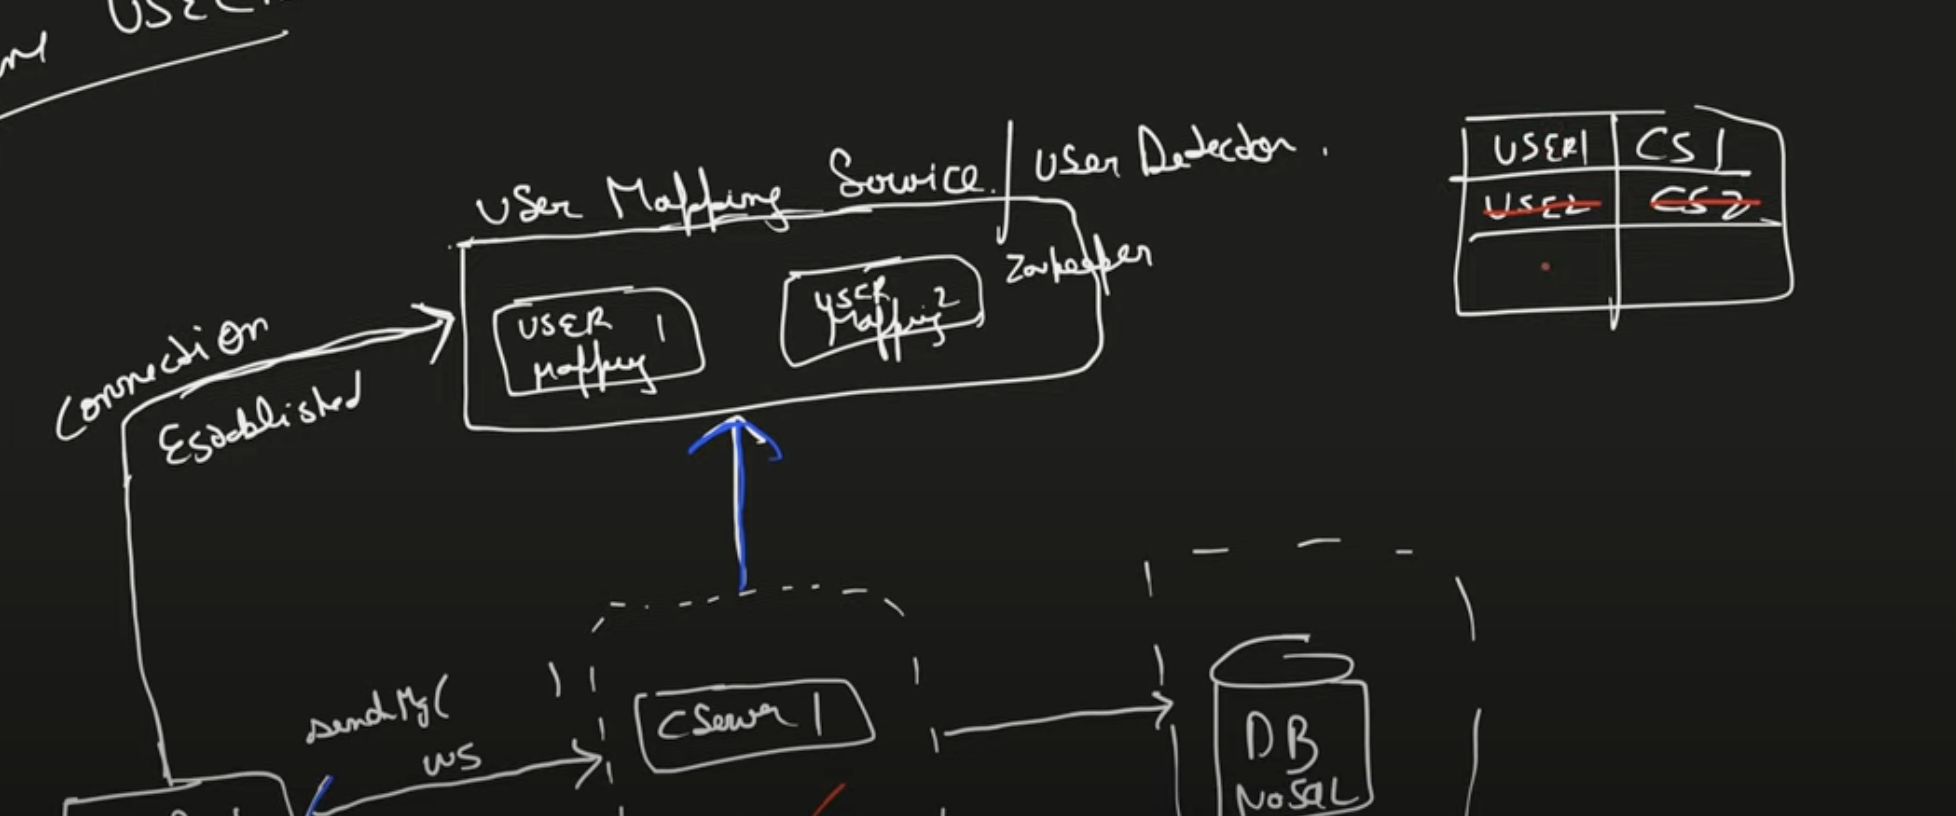 User Mapping Service / User Detector.
Zookeeper
USER 1
Mapping
USER
Mapping 2
USER1 CS1
USE2 CS2
Connection
Established
sendMsg(
WS
CServer 1
DB
NoSQL